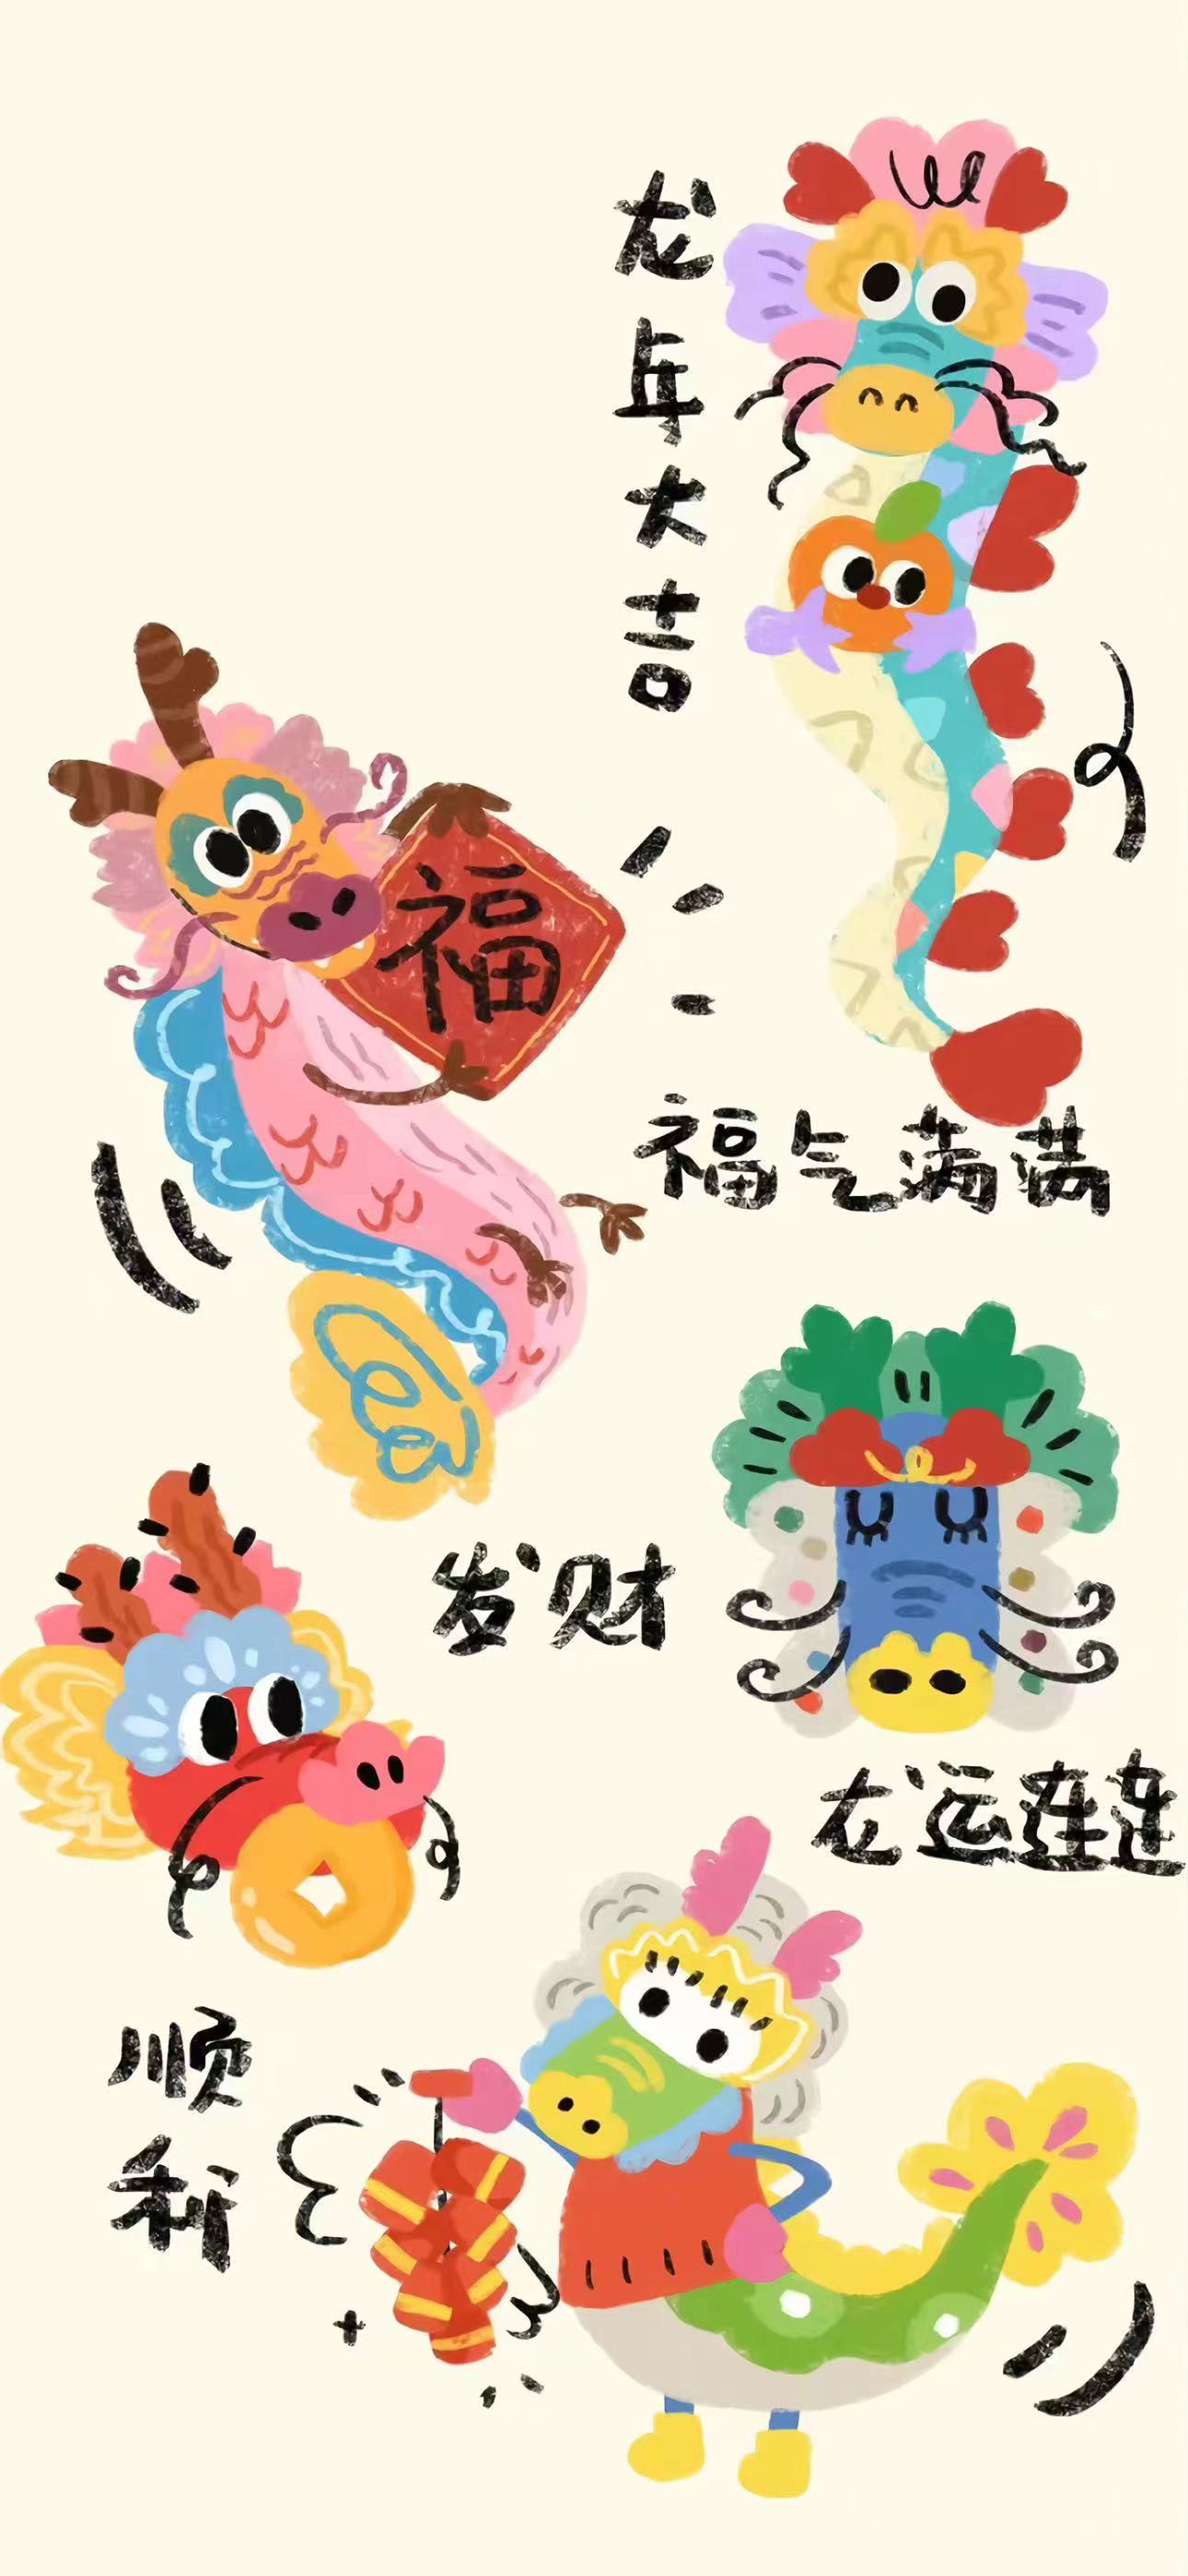 龙年大吉
福
福气满满
发财
龙运连连
顺利